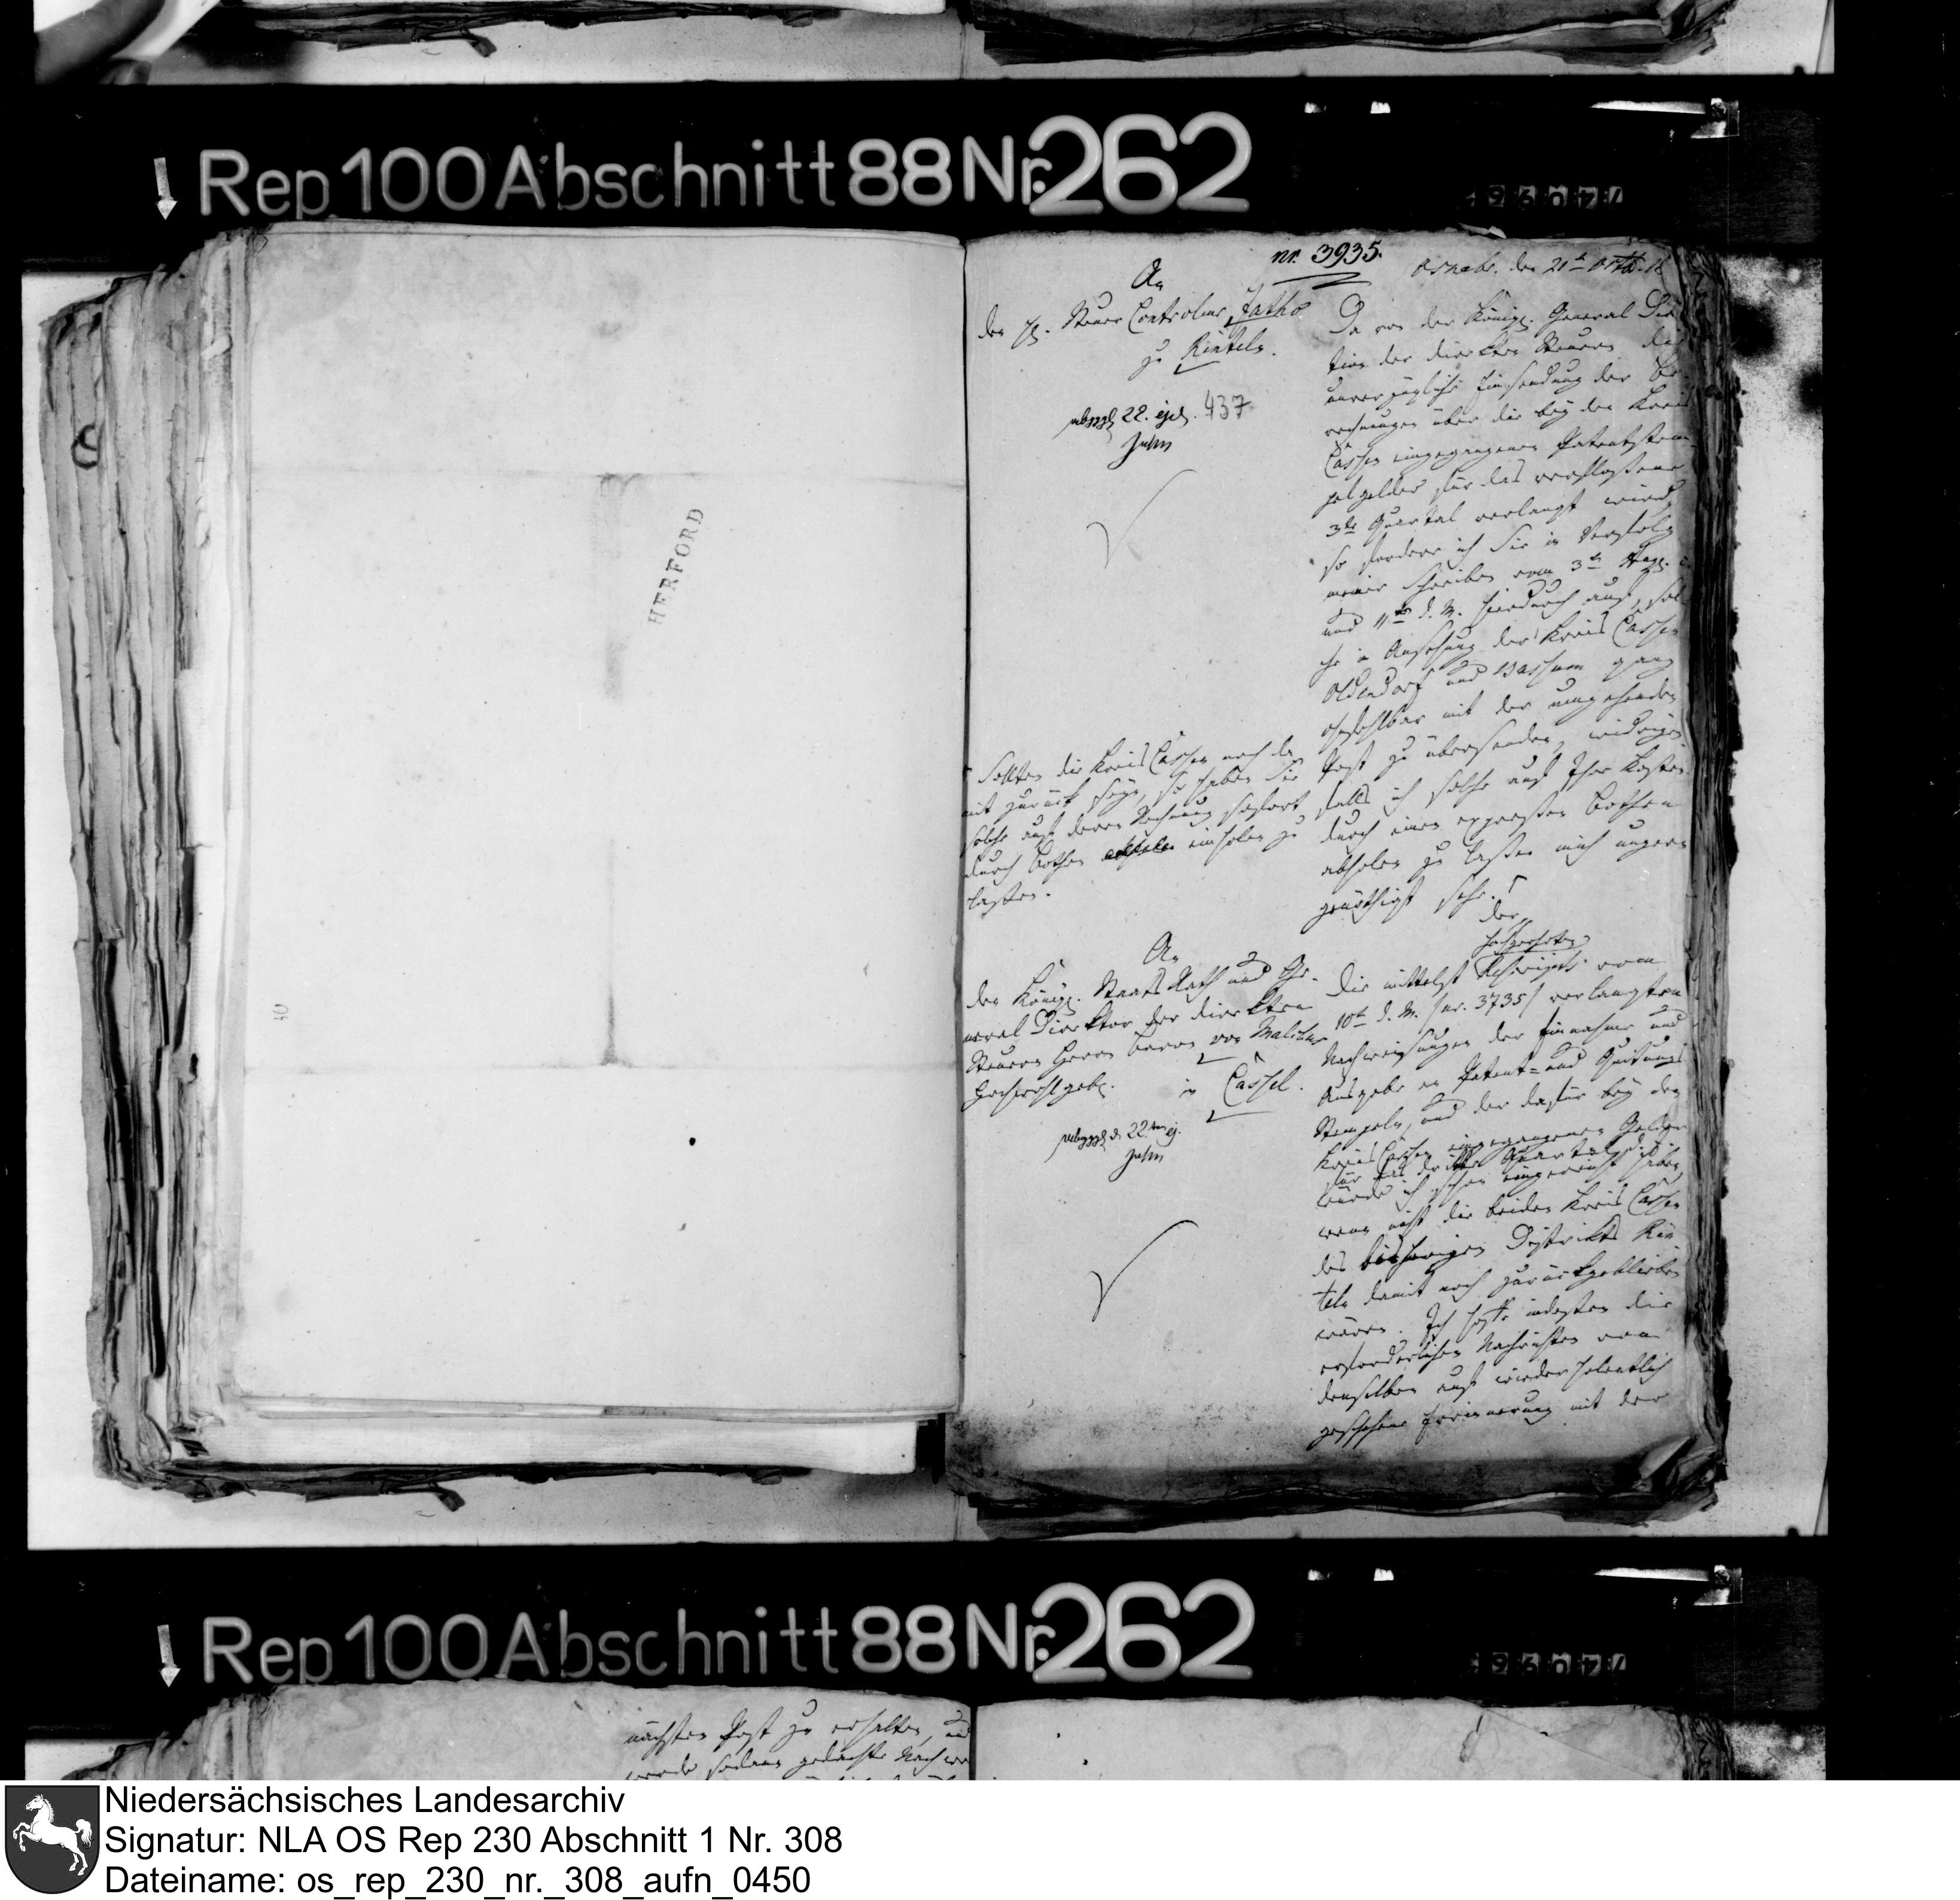 Rep 100 Abschnitt 88 Nr. 262
HERFORD
nr. 3935.
Osnabr. den 21t Octb. 18
An
den H. Steuer Controleur Jatho
zu Rinteln.
22. ejd. 437
Da von der Königl. General Direc
tion der direkten Steuern die
unverzügliche Einsendung der Be
rechnungen über die bey den Kreis
Cassen eingegangenen Patentstem
pelgelder für das verflossene
3te Quartal verlangt wird,
so fordere ich Sie in Verfolg
meiner Schreiben vom 3ten
und 11ten d. M. hierdurch auf, sol
che in Ansehung der Kreis Cassen
Oldendorf und Bassum ganz
ohnfehlbar mit der umgehenden
Post zu übersenden, widrigen
falls ich solche auf Ihre Kosten
durch einen expressen Bothen
abholen zu lassen mich ungern
genöthigt sehe.
Sollten die Kreis Cassen noch da
mit zurück seyn, so haben Sie
solche auf deren Rechnung sofort
durch Bothen einholen zu
lassen.
An
den Königl. Staats Rath und Ge-
neral Direktor der direkten
Steuern Herrn Baron von Malchus
Hochwohlgeb.
in Cassel.
22ten ej.
der
Die mittelst Rescripts vom
10ten d. M. (nr. 3735) verlangten
Nachweisungen der Einnahme und
Ausgabe an Patent- und Quitungs
Stempeln, und der dafür bey den
Kreis Cassen eingegangenen Gelder
für das dritte Quartal
würde ich schon eingereicht haben,
wenn nicht die beiden Kreis Cassen
des bisherigen Distrikts Rin
teln damit noch zurückgeblieben
wären. Ich hoffe indessen die
erforderlichen Nachrichten von
denselben auf wiederholentlich
geschehene Erinnerung mit der
Rep 100 Abschnitt 88 Nr. 262
nächsten Post zu erhalten, und
werde sodann gedachte Nachwei
Niedersächsisches Landesarchiv
Signatur: NLA OS Rep 230 Abschnitt 1 Nr. 308
Dateiname: os_rep_230_nr._308_aufn_0450